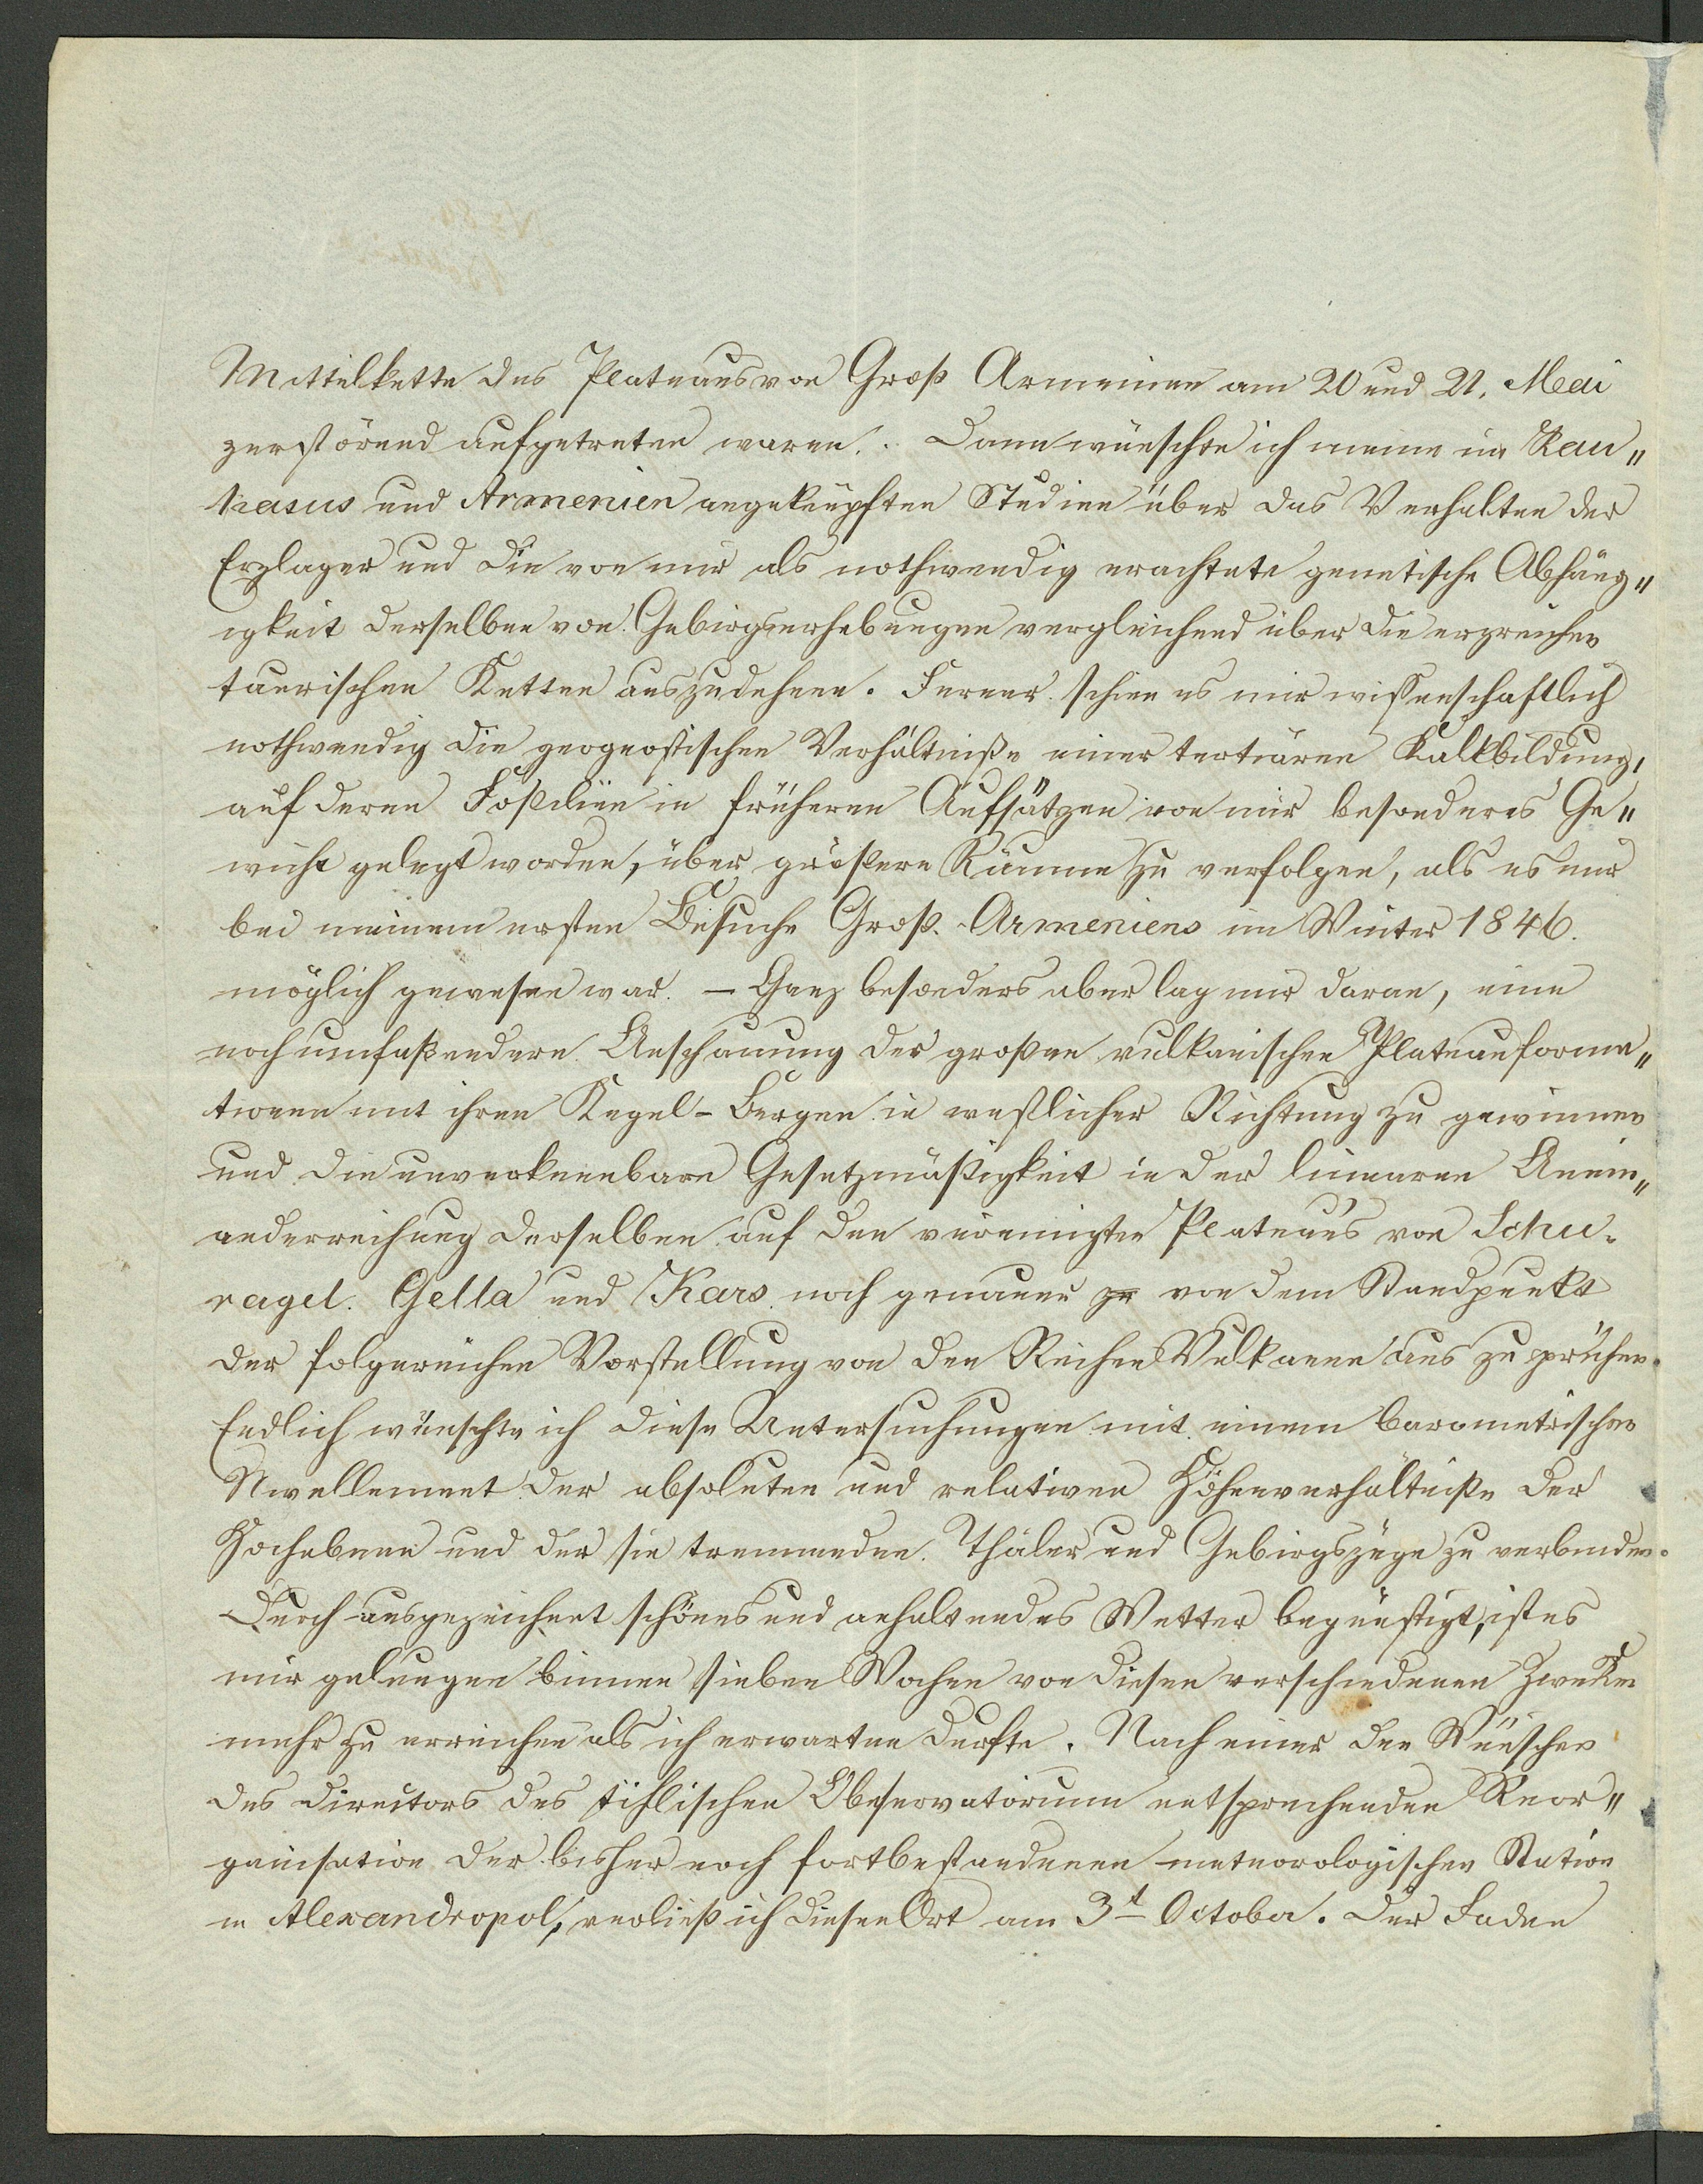 Mittelkette des Plateaus von Groß Armenien am 20 und 21. Mai
zerstörend aufgetreten waren. Dann wünschte ich meine im Kau„
kasus und Armenien angeknüpften Studien über das Verhalten der
Erzlager und die von mir als nothwendig erachtete genetische Abhäng„
igkeit derselben von Gebirgserhebungen vergleichend über die erzreichen
taurischen Ketten auszudehnen. Ferner schien es mir wissenschaftlich
nothwendig die geognostischen Verhältniße einer tertiären Kalkbildung,
auf deren Foßilien in früheren Aufsätzen von mir besonderes Ge„
wicht gelegt worden, über größere Räume zu verfolgen, als es mir
bei meinem ersten Besuche Groß-Armeniens im Winter 1846.
möglich gewesen war. – Ganz besonders aber lag mir daran, eine
noch umfaßendere Anschauung der großen vulkanischen Plateauforma„
tionen mit ihren Kegel-Bergen in westlicher Richtung zu gewinnen
und die unverkennbare Gesetzmäßigkeit in der linearen Anein„
anderreihung derselben auf den vereinigten Plateau's von Schu-
ragel. Gella und Kars noch genauer zu von dem Standpunkt
der folgereichen Vorstellung von den Reihen Vulkanen aus zu prüfen.
Endlich wünschte ich diese Untersuchungen mit einem barometrischen
Nivellement der absoluten und relativen Höhenverhältniße der
Hochebenen und der sie trennenden Thäler und Gebirgszüge zu verbinden.
Durch ausgezeichnet schönes und anhaltendes Wetter begünstigt, ist es
mir gelungen binnen sieben Wochen von diesen verschiedenen Zwecken
mehr zu erreichen als ich erwarten durfte. Nach einer den Wünschen
des Directors des tiflischen Observatoriums entsprechenden Reor„
ganisation der bisher noch fortbestandenen meteorologischen Station
in Alexandropol, verließ ich diesen Ort am 3t October. Der Faden